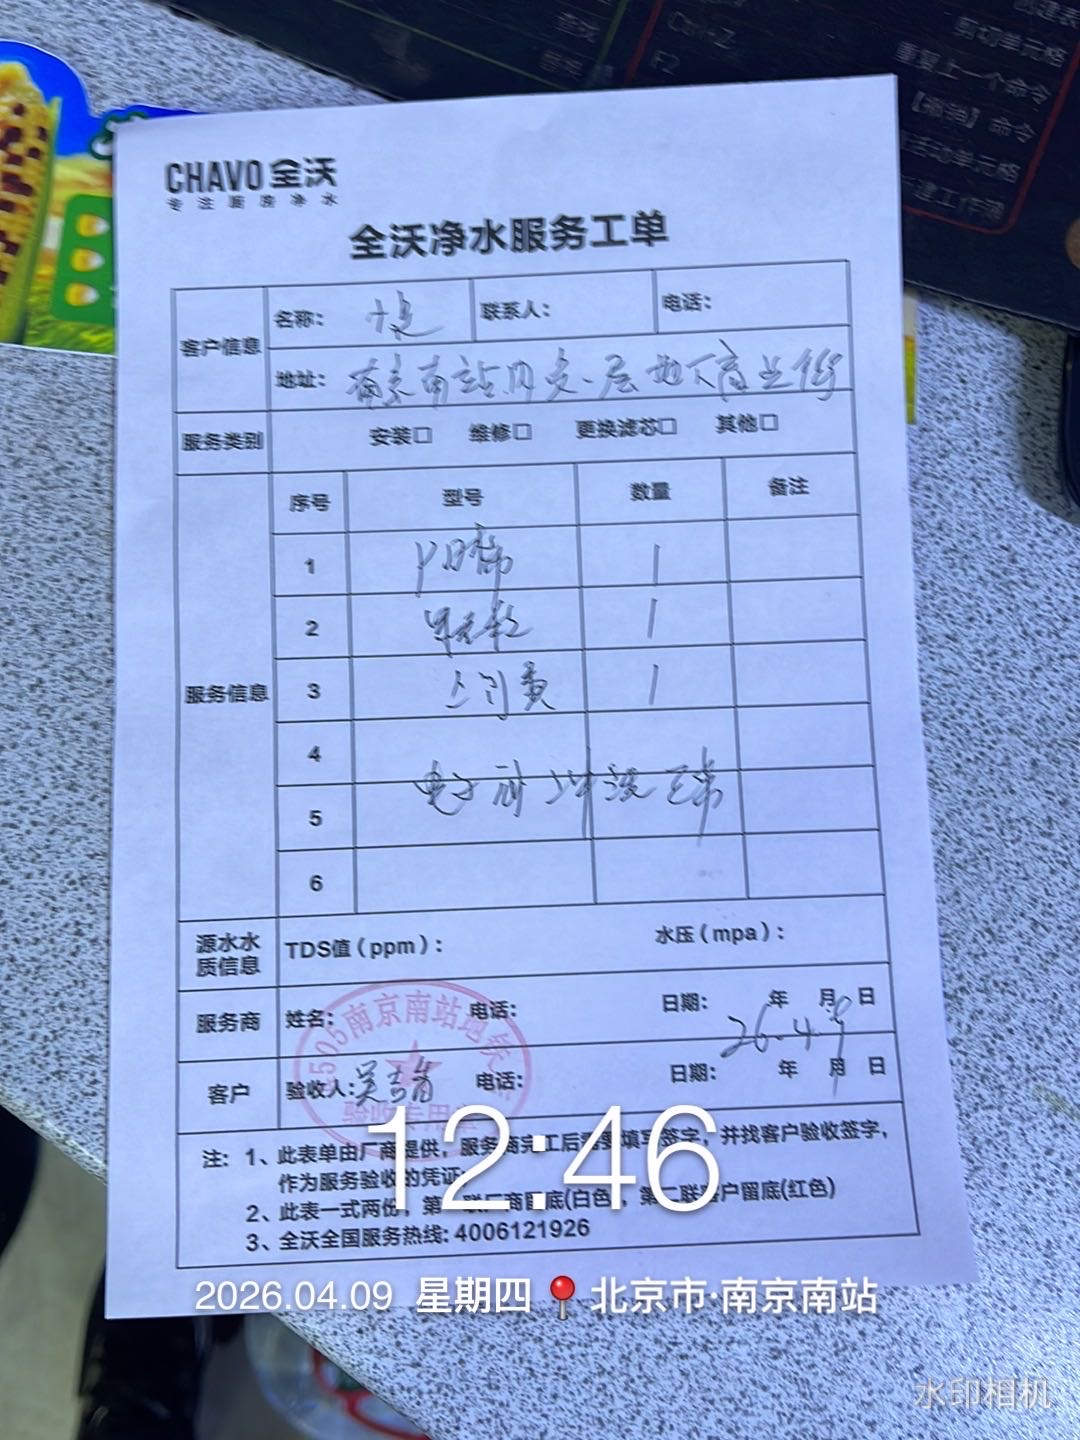 创建表
剪切单元格
重复上一个命令
【撤销】命令
Ctrl+Z
F2
查找
替换
CHAVO 全沃
专注厨房净水
全沃净水服务工单
客户信息 名称: 联系人: 电话:
地址: 南京南站内负一层地下商业街
服务类别 安装□ 维修□ 更换滤芯□ 其他□
服务信息 序号 型号 数量 备注
1 1
2 1
3 上门费 1
4
电子 冲洗正常
5
6
源水水质信息 TDS值(ppm): 水压(mpa):
服务商 姓名: 电话: 日期: 年 月 日
26.4.9
客户 验收人: 电话: 日期: 年 月 日
南京南站地
验收专用
注: 1、此表单由厂商提供,服务商完工后需要填写签字,并找客户验收签字,
作为服务验收的凭证
2、此表一式两份,第一联厂商留底(白色),第二联客户留底(红色)
3、全沃全国服务热线: 4006121926
12:46
2026.04.09 星期四 北京市·南京南站
水印相机